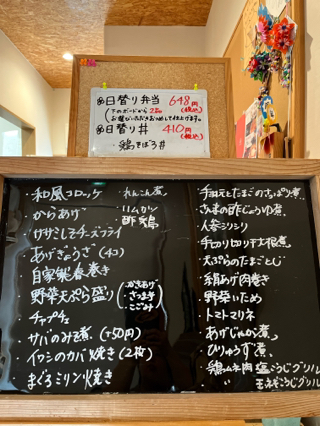 日替り弁当 648円(税込)
(下のボードから2品
お選びいただきおつめして仕上げます。
日替り丼 410円(税込)
・鶏そぼろ丼
・和風コロッケ
・からあげ
・ササミしそチーズフライ
・あげぎょうざ(4コ)
・自家製春巻き
・野菜天ぷら盛り(・かきあげ
・さつま芋
・こごみ)
・チャプチェ
・サバのみそ煮(+50円)
・イワシのカバ焼き(2枚)
・まぐろミリン焼き
・れんこん煮
・リムカツ
・酢鶏
・手羽元とたまごのさっぱり煮
・さんまの甘じょうゆ煮
・人参シリシリ
・切り干し大根煮
・天ぷらのたまごとじ
・絹あげ肉巻き
・野菜いため
・トマトマリネ
・あげじゃが煮
・ひりゅうず煮
・鶏ムネ肉 塩こうじグリル
・〃 玉ねぎこうじグリル